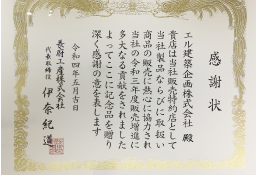 感謝状
エル建築企画株式会社 殿
貴店は当社販売特約店として
当社製品ならびに取扱い
商品の販売に熱心に協力され
当社の令和三年度販売増進に
多大なる貢献をされました
よってここに記念品を贈り
深く感謝の意を表します
令和四年五月吉日
長府工産株式会社
代表取締役 伊奈紀道